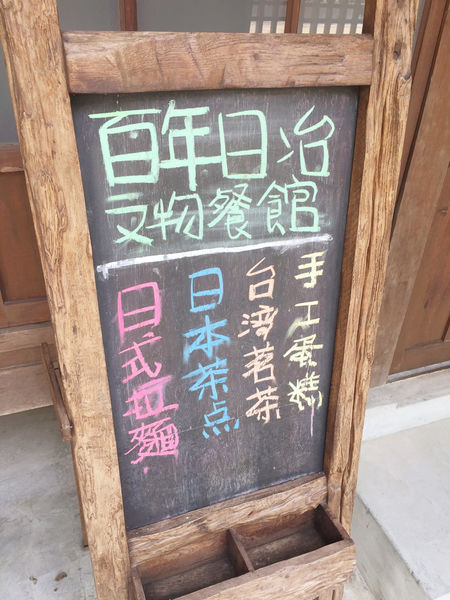 百年日冶
文物餐館
手工蛋糕
台湾茗茶
日本茶点
日式拉麵